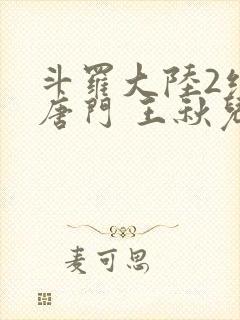 斗羅大陸2絕
唐門 王秋兒
麦可思